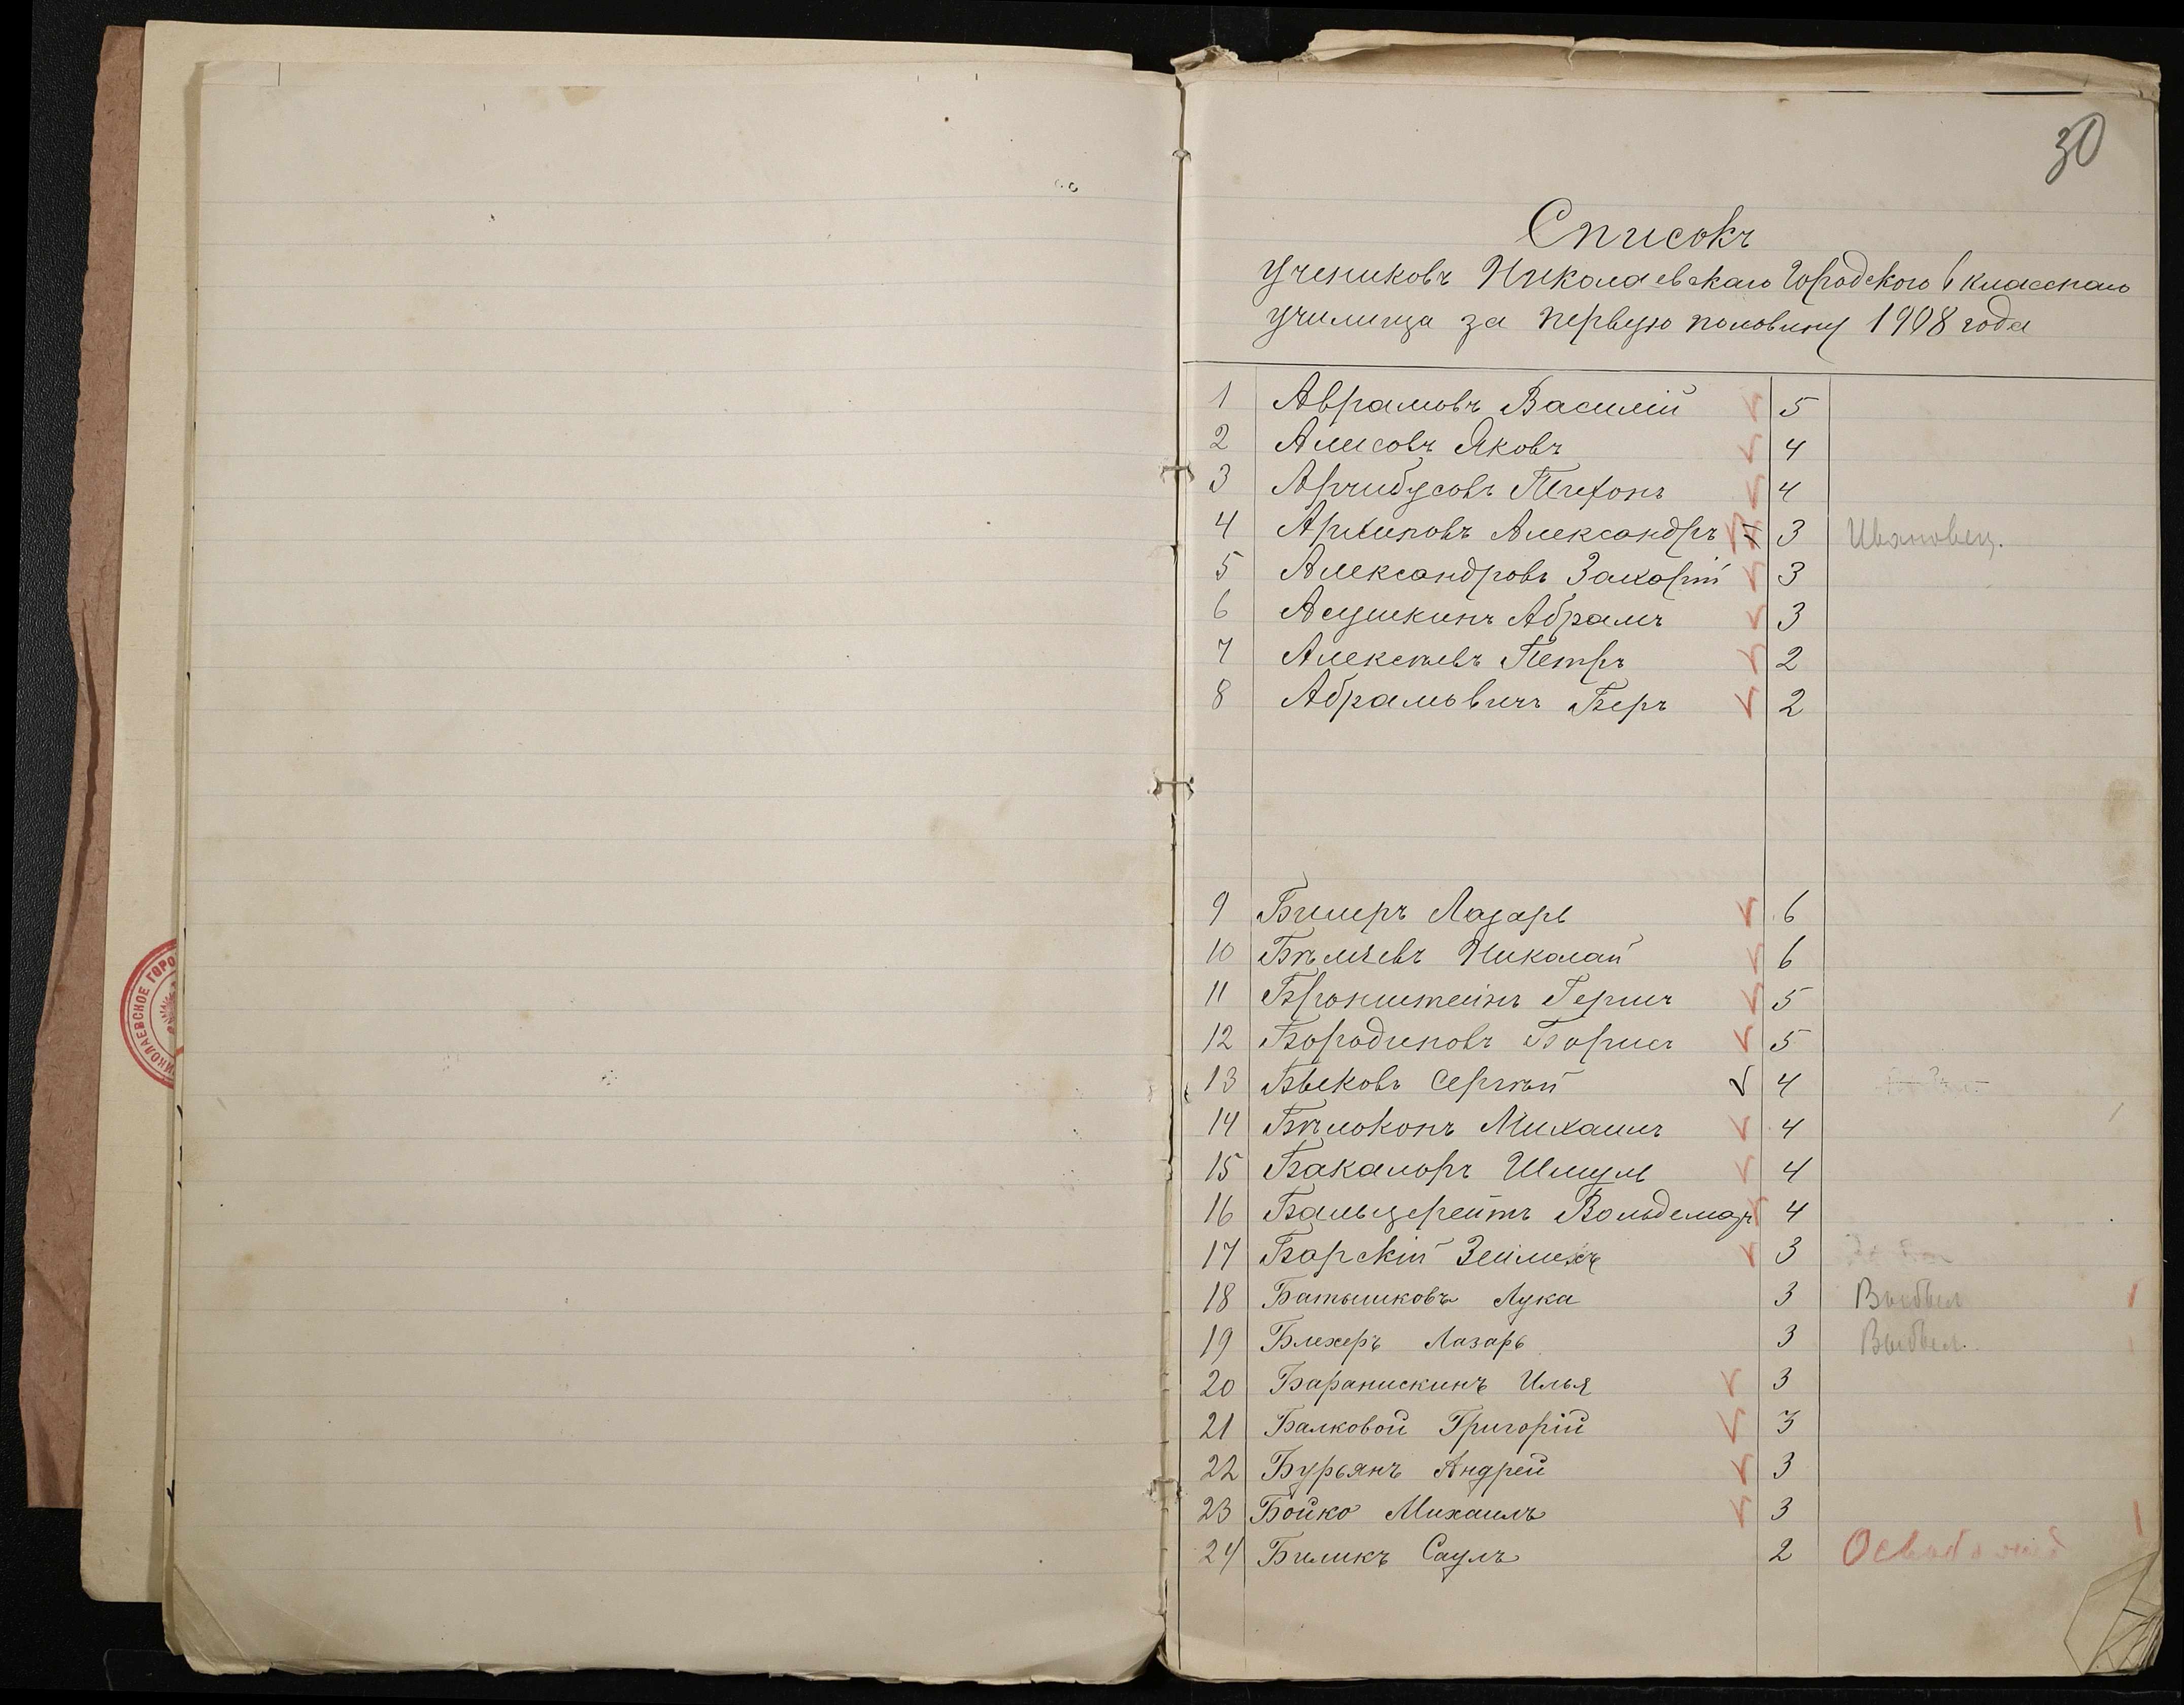 30
Списокъ
учениковъ Николаевскаго Городского 6 класснаго
училища за первую половину 1908 года
1 Аврамовъ Василій 5
2 Алисовъ Яковъ 4
3 Арчибусовъ Тихонъ 4
4 Архиповъ Александръ 3 Ивановец.
5 Александровъ Захарій 3
6 Асушкинъ Абрамъ 3
7 Алексѣевъ Петръ 2
8 Абрамовичъ Беръ 2
9 Билеръ Лазарь 6
10 Бѣляевъ Николай 6
11 Бронштейнъ Гершъ 5
12 Бородиновъ Борисъ 5
13 Быковъ Сергѣй 4
14 Бѣлоконъ Михаилъ 4
15 Бакалоръ Шмуль 4
16 Бальцерейтъ Вольдемаръ 4
17 Барскій Зейлихъ 3
18 Батышковъ Лука 3 Выбыл
19 Блехеръ Лазарь 3 Выбыл.
20 Баранискинъ Илья 3
21 Балковой Григорій 3
22 Бурьянъ Андрей 3
23 Бойко Михаилъ 3
24 Биликъ Саулъ 2
НИКОЛАЕВСКОЕ ГОРО